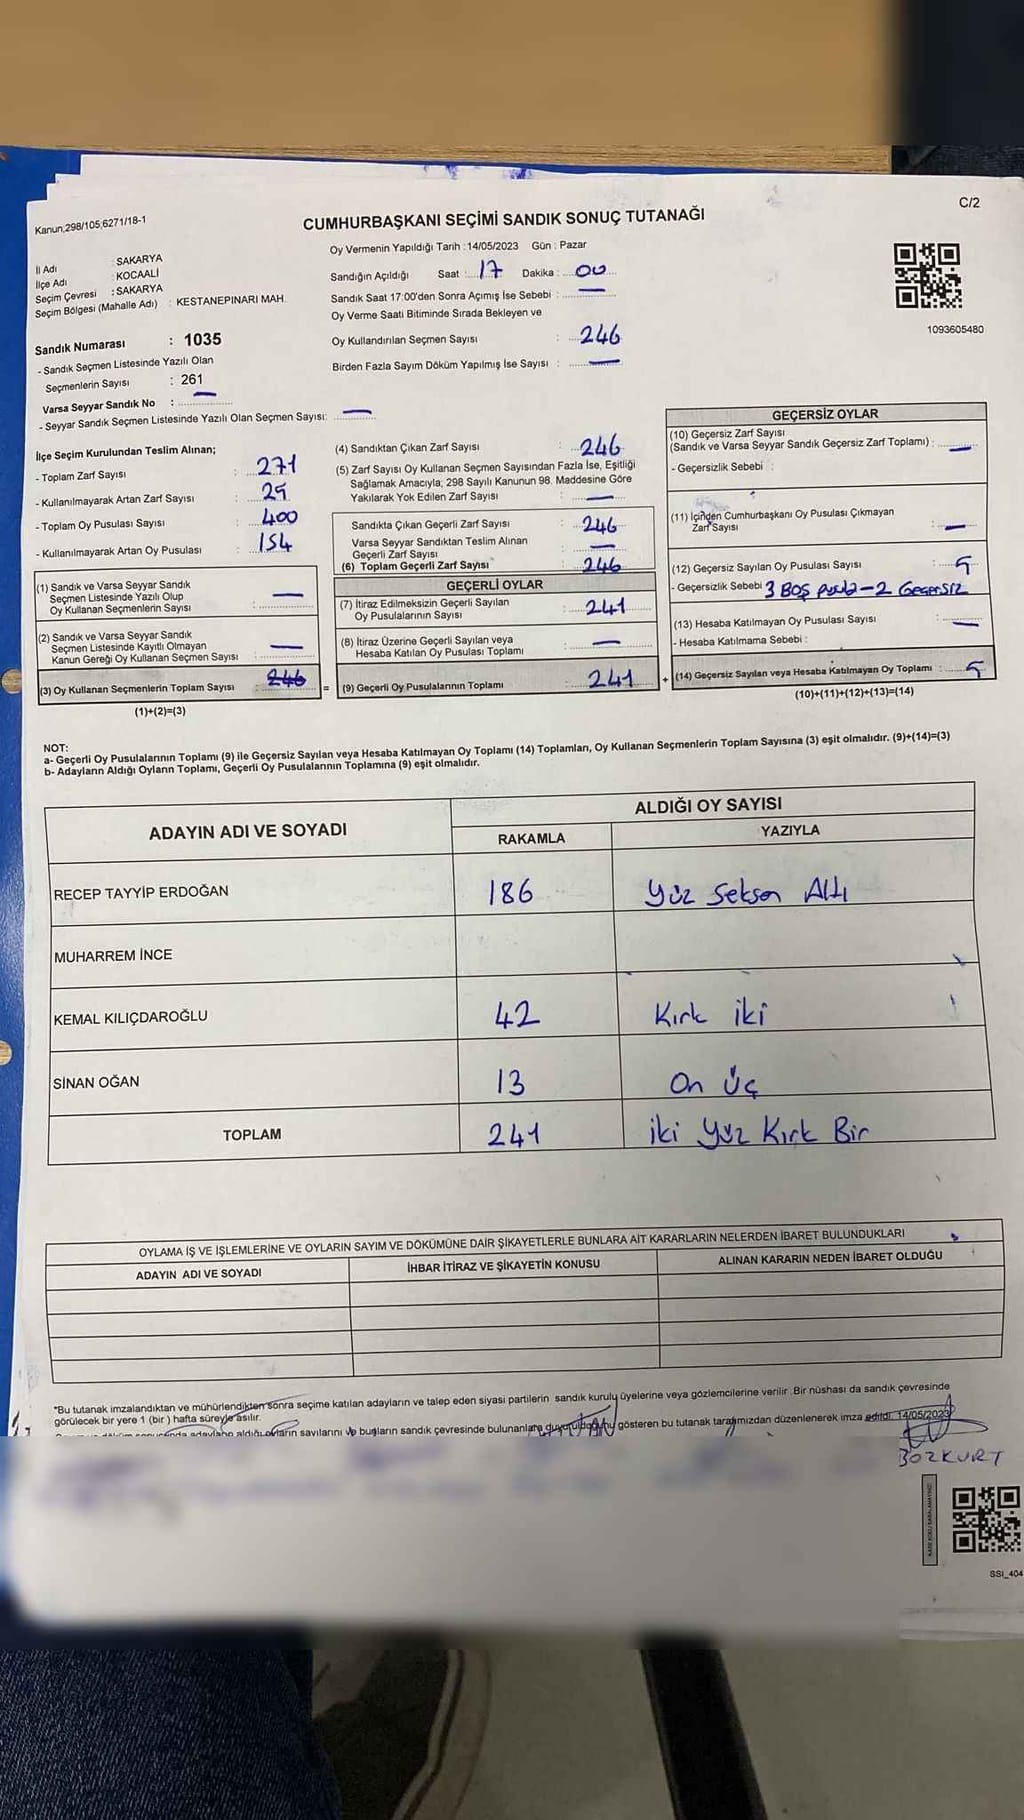 C/2
Kanun;298/105;6271/18-1
CUMHURBAŞKANI SEÇİMİ SANDIK SONUÇ TUTANAĞI
İl Adı : SAKARYA
İlçe Adı : KOCAALİ
Seçim Çevresi : SAKARYA
Seçim Bölgesi (Mahalle Adı) : KESTANEPINARI MAH.
Sandık Numarası : 1035
- Sandık Seçmen Listesinde Yazılı Olan
Seçmenlerin Sayısı : 261
Varsa Seyyar Sandık No : —
- Seyyar Sandık Seçmen Listesinde Yazılı Olan Seçmen Sayısı: —
Oy Vermenin Yapıldığı Tarih : 14/05/2023 Gün : Pazar
Sandığın Açıldığı Saat : 17 Dakika : 00
Sandık Saat 17:00'den Sonra Açımış İse Sebebi : —
Oy Verme Saati Bitiminde Sırada Bekleyen ve
Oy Kullandırılan Seçmen Sayısı : 246
Birden Fazla Sayım Döküm Yapılmış İse Sayısı : —
1093605480
İlçe Seçim Kurulundan Teslim Alınan;
- Toplam Zarf Sayısı : 271
- Kullanılmayarak Artan Zarf Sayısı : 25
- Toplam Oy Pusulası Sayısı : 400
- Kullanılmayarak Artan Oy Pusulası : 154
(1) Sandık ve Varsa Seyyar Sandık
Seçmen Listesinde Yazılı Olup
Oy Kullanan Seçmenlerin Sayısı : —
(2) Sandık ve Varsa Seyyar Sandık
Seçmen Listesinde Kayıtlı Olmayan
Kanun Gereği Oy Kullanan Seçmen Sayısı : —
(3) Oy Kullanan Seçmenlerin Toplam Sayısı : 246 =
(1)+(2)=(3)
(4) Sandıktan Çıkan Zarf Sayısı : 246
(5) Zarf Sayısı Oy Kullanan Seçmen Sayısından Fazla İse, Eşitliği
Sağlamak Amacıyla; 298 Sayılı Kanunun 98. Maddesine Göre
Yakılarak Yok Edilen Zarf Sayısı : —
Sandıkta Çıkan Geçerli Zarf Sayısı : 246
Varsa Seyyar Sandıktan Teslim Alınan
Geçerli Zarf Sayısı : —
(6) Toplam Geçerli Zarf Sayısı : 246
GEÇERLİ OYLAR
(7) İtiraz Edilmeksizin Geçerli Sayılan
Oy Pusulalarının Sayısı : 241
(8) İtiraz Üzerine Geçerli Sayılan veya
Hesaba Katılan Oy Pusulası Toplamı : —
(9) Geçerli Oy Pusulalarının Toplamı : 241 +
GEÇERSİZ OYLAR
(10) Geçersiz Zarf Sayısı
(Sandık ve Varsa Seyyar Sandık Geçersiz Zarf Toplamı) : —
- Geçersizlik Sebebi :
(11) İçinden Cumhurbaşkanı Oy Pusulası Çıkmayan
Zarf Sayısı : —
(12) Geçersiz Sayılan Oy Pusulası Sayısı : 5
- Geçersizlik Sebebi 3 BOŞ pusula - 2 Geçersiz
(13) Hesaba Katılmayan Oy Pusulası Sayısı : —
- Hesaba Katılmama Sebebi :
(14) Geçersiz Sayılan veya Hesaba Katılmayan Oy Toplamı : 5
(10)+(11)+(12)+(13)=(14)
NOT:
a- Geçerli Oy Pusulalarının Toplamı (9) ile Geçersiz Sayılan veya Hesaba Katılmayan Oy Toplamı (14) Toplamları, Oy Kullanan Seçmenlerin Toplam Sayısına (3) eşit olmalıdır. (9)+(14)=(3)
b- Adayların Aldığı Oyların Toplamı, Geçerli Oy Pusulalarının Toplamına (9) eşit olmalıdır.
ADAYIN ADI VE SOYADI
ALDIĞI OY SAYISI
RAKAMLA YAZIYLA
RECEP TAYYİP ERDOĞAN 186 Yüz Seksen Altı
MUHARREM İNCE
KEMAL KILIÇDAROĞLU 42 Kırk iki
SİNAN OĞAN 13 On Üç
TOPLAM 241 iki Yüz Kırk Bir
OYLAMA İŞ VE İŞLEMLERİNE VE OYLARIN SAYIM VE DÖKÜMÜNE DAİR ŞİKAYETLERLE BUNLARA AİT KARARLARIN NELERDEN İBARET BULUNDUKLARI
ADAYIN ADI VE SOYADI İHBAR İTİRAZ VE ŞİKAYETİN KONUSU ALINAN KARARIN NEDEN İBARET OLDUĞU
*Bu tutanak imzalandıktan ve mühürlendikten sonra seçime katılan adayların ve talep eden siyasi partilerin sandık kurulu üyelerine veya gözlemcilerine verilir .Bir nüshası da sandık çevresinde
görülecek bir yere 1 (bir ) hafta süreyle asılır.
adayların aldığı oyların sayılarını ve bunların sandık çevresinde bulunanlara duyurulduğunu gösteren bu tutanak tarafımızdan düzenlenerek imza edildi. 14/05/2023
BOZKURT
SSI_404